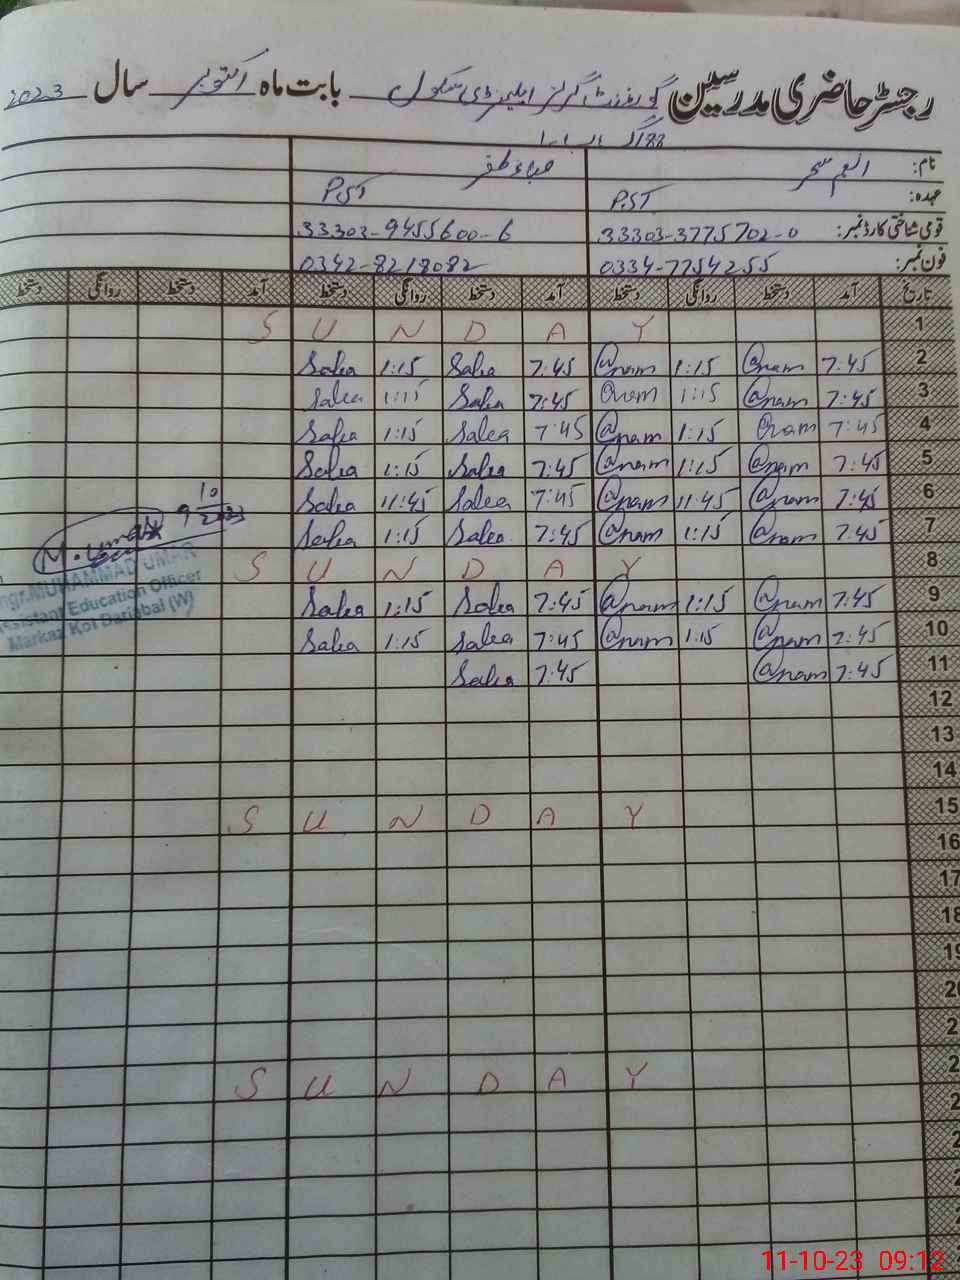 رجسٹر حاضری مدرسین گورنمنٹ گرلز ایلیمنٹری سکول بابت ماہ اکتوبر سال 2023
نام: انعم سحر
عہدہ: PST PST
قومی شناختی کارڈ نمبر: 33303-3775702-0 33303-9455600-6
فون نمبر: 0334-7754255 0342-8218082
تاریخ آمد دستخط روانگی دستخط آمد دستخط روانگی دستخط آمد دستخط روانگی دستخط
1 S U N D A Y
2 7:45 @nam 1:15 @nam 7:45 Saba 1:15 Saba
3 7:45 @nam 1:15 @nam 7:45 Saba 1:15 Saba
4 7:45 @nam 1:15 @nam 7:45 Saba 1:15 Saba
5 7:45 @nam 1:15 @nam 7:45 Saba 1:15 Saba
6 7:45 @nam 11:45 @nam 7:45 Saba 11:45 Saba
7 7:45 @nam 1:15 @nam 7:45 Saba 1:15 Saba
8 S U N D A Y
9 7:45 @nam 1:15 @nam 7:45 Saba 1:15 Saba
10 7:45 @nam 1:15 @nam 7:45 Saba 1:15 Saba
11 7:45 @nam 7:45 Saba
12
13
14
15 S U N D A Y
16
17
18
19
20
2
2 S U N D A Y
2
2
2
2
M. Umar 9 10 2023
MUHAMMAD UMAR
Assistant Education Officer
Markaz Kot Darigbal (W)
11-10-23 09:12